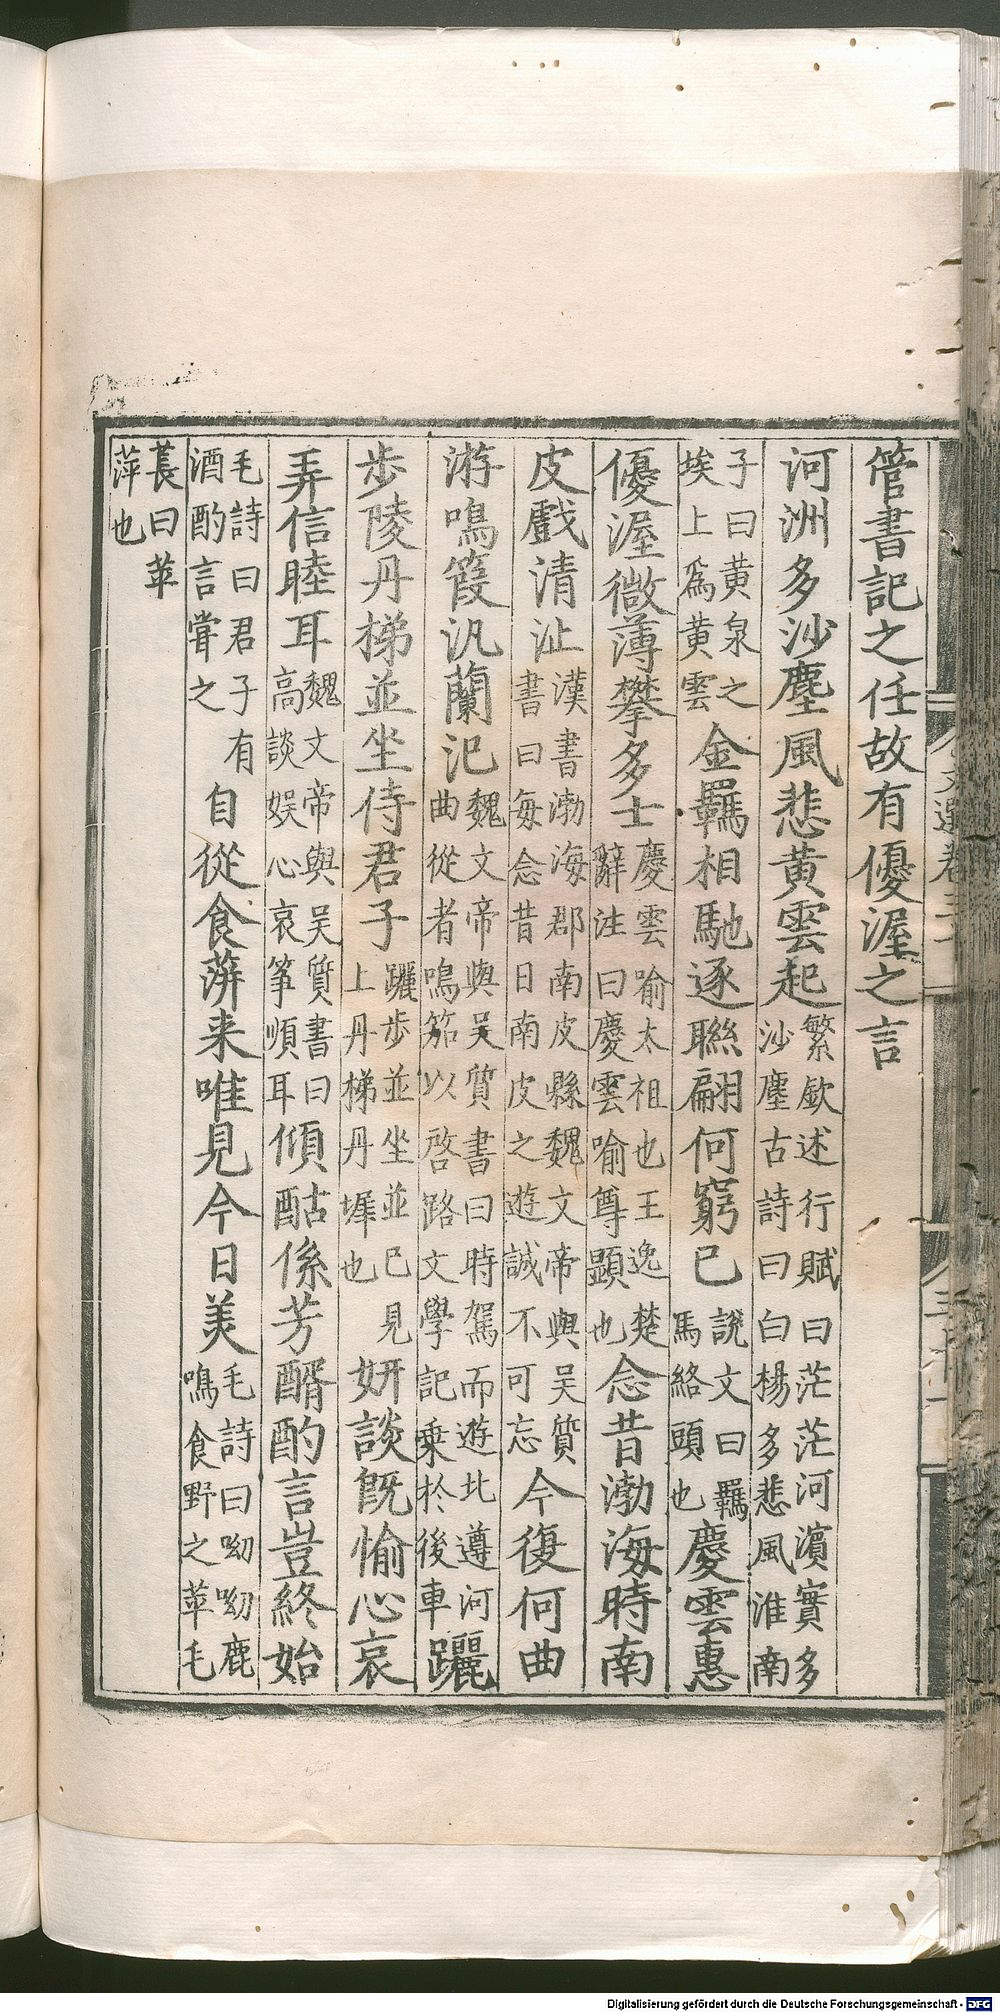 管書記之任故有優渥之言
河洲多沙塵風悲黃雲起繁欽述行賦曰茫茫河濵實多沙塵古詩曰白楊多悲風淮南
子曰黃泉之埃上爲黃雲金羈相馳逐聯翩何窮已說文曰羈馬絡頭也慶雲惠
優渥微薄攀多士慶雲喻太祖也王逸楚辭注曰慶雲喻尊顯也念昔渤海時南
皮戲清沚漢書渤海郡南皮縣魏文帝與吴質書曰每念昔日南皮之遊誠不可忘今復何曲
游鳴葭汎蘭汜魏文帝與吴質書曰時駕而遊北遵河曲從者鳴笳以啓路文學記乗於後車躧
步陵丹梯並坐侍君子躧步並坐並已見上丹梯丹墀也妍談旣愉心哀
弄信睦耳魏文帝與吴質書曰高談娛心哀筝順耳傾酤係芳醑酌言豈終始
毛詩曰君子有酒酌言甞之自從食蓱来唯見今日美毛詩曰呦呦鹿鳴食野之苹毛
萇曰苹萍也
文選卷三十
三十一
Digitalisierung gefördert durch die Deutsche Forschungsgemeinschaft - DFG